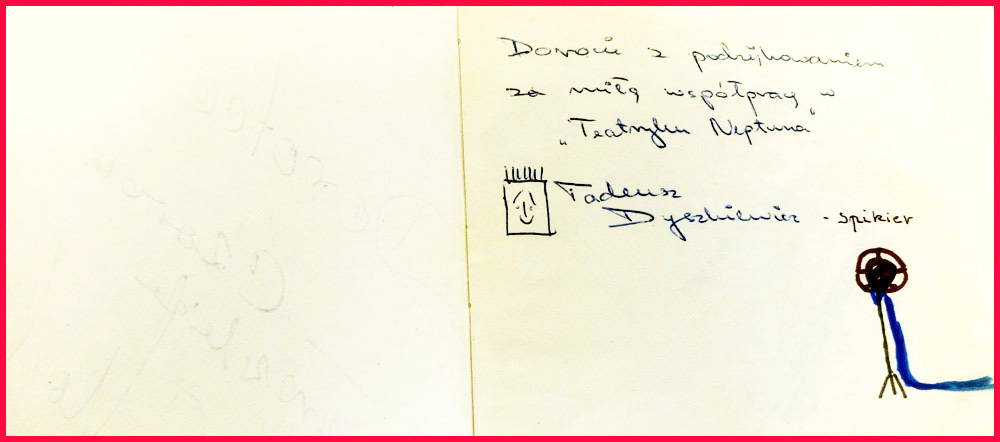 Dorocie z podziękowaniem
za miłą współpracę w
„Teatrzyku Neptuna"
Tadeusz
Dyszkiewicz - spikier